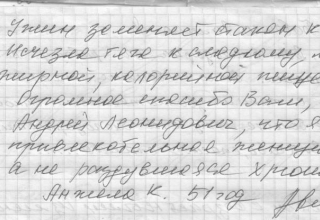 Ужин заменяет стакан к
Исчезла тяга к сладкому,
жирной, калорийной пище
Огромное спасибо Вам,
Андрей Леонидович, что я
привлекательная женщи
а не раздувшаяся хрюш
Анжела К. 51 год